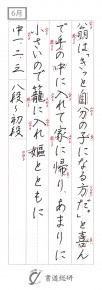 6月
翁は「きっと自分の子になる方だ。」と喜ん
で手の中に入れて家に帰り、あまりに
小さいので籠に入れ、嫗とともに
中一・二・三 八段〜初段
書道総研